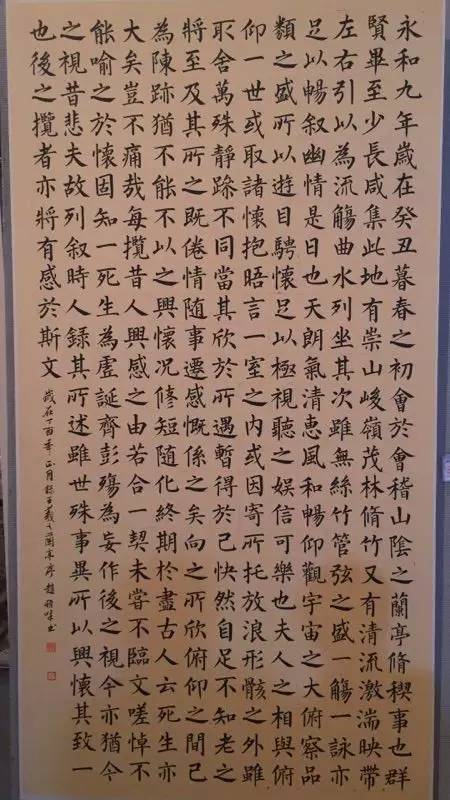 永和九年歲在癸丑暮春之初會於會稽山陰之蘭亭脩稧事也群
賢畢至少長咸集此地有崇山峻嶺茂林脩竹又有清流激湍映帶
左右引以為流觴曲水列坐其次雖無絲竹管弦之盛一觴一詠亦
足以暢叙幽情是日也天朗氣清惠風和暢仰觀宇宙之大俯察品
類之盛所以遊目騁懷足以極視聽之娱信可樂也夫人之相與俯
仰一世或取諸懷抱晤言一室之内或因寄所托放浪形骸之外雖
取舍萬殊靜躁不同當其欣於所遇暫得於己快然自足不知老之
將至及其所之既倦情随事遷感慨係之矣向之所欣俯仰之間已
為陳跡猶不能不以之興懷况修短随化終期於盡古人云死生亦
大矣豈不痛哉每攬昔人興感之由若合一契未嘗不臨文嗟悼不
能喻之於懷固知一死生為虚誕齊彭殤為妄作後之視今亦猶今
之視昔悲夫故列叙時人録其所述雖世殊事異所以興懷其致一
也後之攬者亦將有感於斯文
歲在丁酉年正月録王羲之蘭亭序趙書